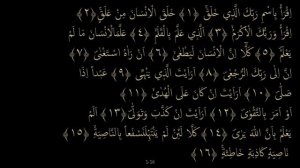 اِقْرَأْ بِاسْمِ رَبِّكَ الَّذِي خَلَقَ ﴿١﴾ خَلَقَ الْاِنْسَانَ مِنْ عَلَقٍ ﴿٢﴾
اِقْرَأْ وَرَبُّكَ الْاَكْرَمُ ﴿٣﴾ الَّذِي عَلَّمَ بِالْقَلَمِ ﴿٤﴾ عَلَّمَ الْاِنْسَانَ مَا لَمْ
يَعْلَمْ ﴿٥﴾ كَلَّا اِنَّ الْاِنْسَانَ لَيَطْغٰى ﴿٦﴾ اَنْ رَاٰهُ اسْتَغْنٰى ﴿٧﴾
اِنَّ اِلٰى رَبِّكَ الرُّجْعٰى ﴿٨﴾ اَرَاَيْتَ الَّذِي يَنْهٰى ﴿٩﴾ عَبْدًا اِذَا
صَلّٰى ﴿١٠﴾ اَرَاَيْتَ اِنْ كَانَ عَلَى الْهُدٰى ﴿١١﴾
اَوْ اَمَرَ بِالتَّقْوٰى ﴿١٢﴾ اَرَاَيْتَ اِنْ كَذَّبَ وَتَوَلّٰى ﴿١٣﴾ اَلَمْ
يَعْلَمْ بِاَنَّ اللّٰهَ يَرٰى ﴿١٤﴾ كَلَّا لَئِنْ لَمْ يَنْتَهِ لَنَسْفَعًا بِالنَّاصِيَةِ ﴿١٥﴾
نَاصِيَةٍ كَاذِبَةٍ خَاطِئَةٍ ﴿١٦﴾